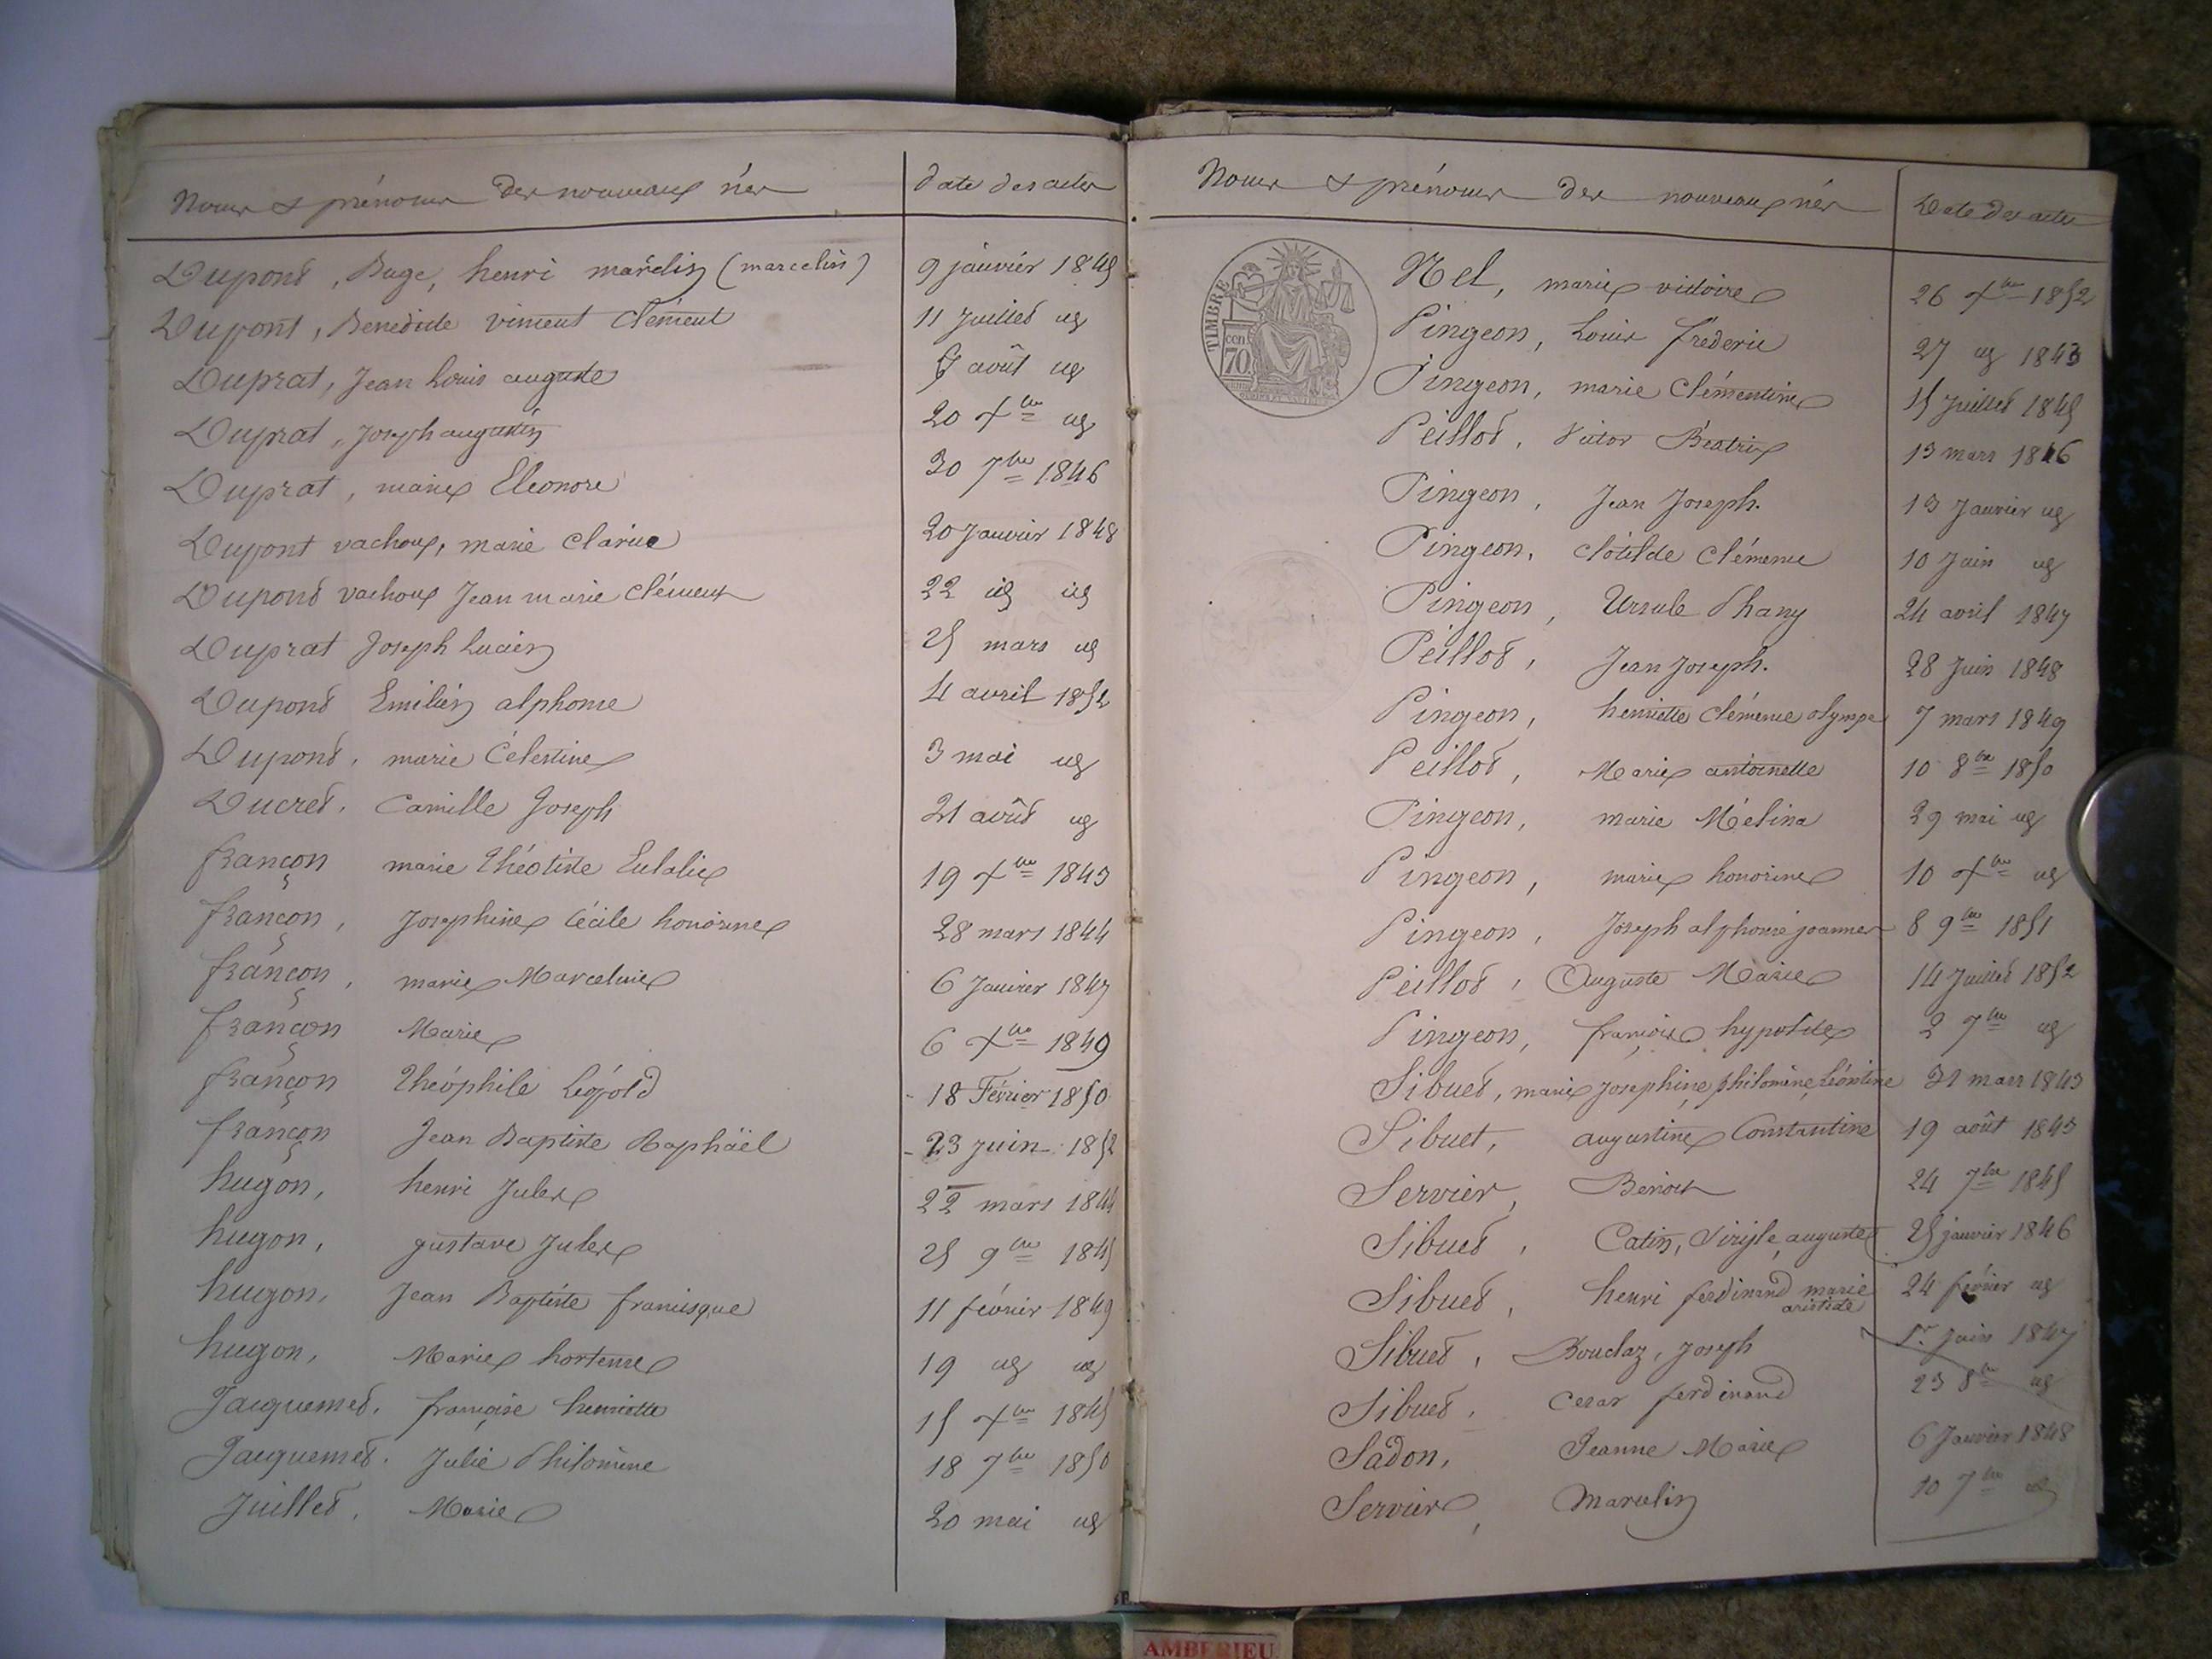 Noms & prénoms des nouveaux nés date des actes
Dupond, Buge, henri marclin (marcelin) 9 janvier 1845
Dupont, Benedicte vincent Clément 11 Juillet id
Duprat, Jean Louis auguste 7 août id
Duprat, Joseph augustin 20 Xbre id
Duprat, marie Eléonore 30 7bre 1846
Dupont vachoux, marie Clarice 20 Janvier 1848
Dupond vachoux Jean marie Clément 22 id id
Duprat Joseph Lucien 25 mars id
Dupond Emilien alphonse 4 avril 1852
Dupond, marie Célestine 3 mai id
Ducret, Camille Joseph 21 août id
françon marie Théotiste Eulalie 19 Xbre 1843
françon, Josephine Cécile honorine 28 mars 1844
françon, marie Marceline 6 Janvier 1847
françon Marie 6 Xbre 1849
françon Théophile Léopold 18 Février 1850
françon Jean Baptiste Raphaël 23 juin 1852
hugon, henri Jules 22 mars 1844
hugon, gustave Jules 25 9bre 1845
hugon, Jean Baptiste francisque 11 février 1849
hugon, Marie hortense 19 id id
Jacquemet, françoise henriette 15 Xbre 1845
Jacquemet, Julie Philomène 18 7bre 1850
Juillet, Marie 20 mai id
Noms & prénoms des nouveaux nés Date des actes
TIMBRE
cent
70
Nel, marie victoire 26 Xbre 1852
Pingeon, Louis frederic 27 id 1843
Pingeon, marie Clémentine 15 Juillet 1845
Peillod, Victor Béatrix 13 mars 1846
Pingeon, Jean Joseph. 13 Janvier id
Pingeon, Clotilde Clémence 10 Juin id
Pingeon, Ursule Phany 24 avril 1847
Peillod, Jean Joseph. 28 Juin 1848
Pingeon, henriette Clémence olympe 7 mars 1849
Peillod, Marie antoinette 10 8bre 1850
Pingeon, marie Mélina 29 mai id
Pingeon, marie honorine 10 Xbre id
Pingeon, Joseph alphonse joannes 8 9bre 1851
Peillod, Auguste Marie 14 Juillet 1852
Pingeon, françois hypolite 2 7bre id
Sibued, marie Josephine philomine Léontine 31 mars 1843
Sibuet, augustine Constantine 19 août 1843
Servier, Benoit 24 7bre 1845
Sibued, Catin, auguste 25 janvier 1846
Sibued, henri ferdinand marie 24 février id
aristide
Sibued, Bouclaz, Joseph 1er Juin 1847
Sibued, Cesar ferdinand 23 8bre id
Sadon, Jeanne Marie 6 Janvier 1848
Servier, Marcelin 10 7bre id
AMBERIEU